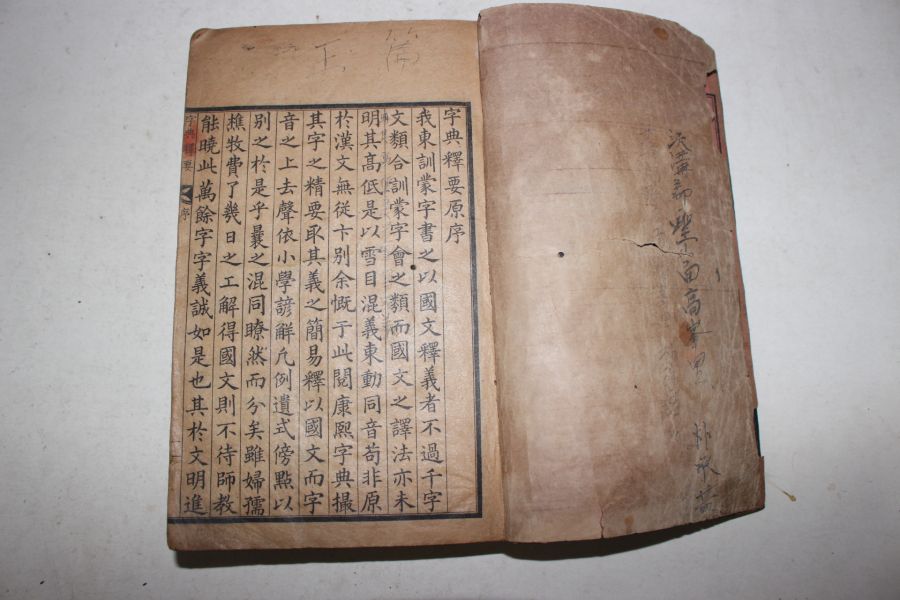 面高峯里
字典釋要原序
我東訓蒙字書之以國文釋義者不過千字
文類合訓蒙字會之類而國文之譯法亦未
明其高低是以雪目混義東動同音苟非原
於漢文無從卞別余慨于此閱康熙字典撮
其字之精要取其義之簡易釋以國文而字
音之上去聲依小學諺解凡例遺式傍點以
別之於是乎曩之混同瞭然而分矣雖婦孺
樵牧費了幾日之工解得國文則不待師教
能曉此萬餘字字義誠如是也其於文明進
字典釋要 序
篇